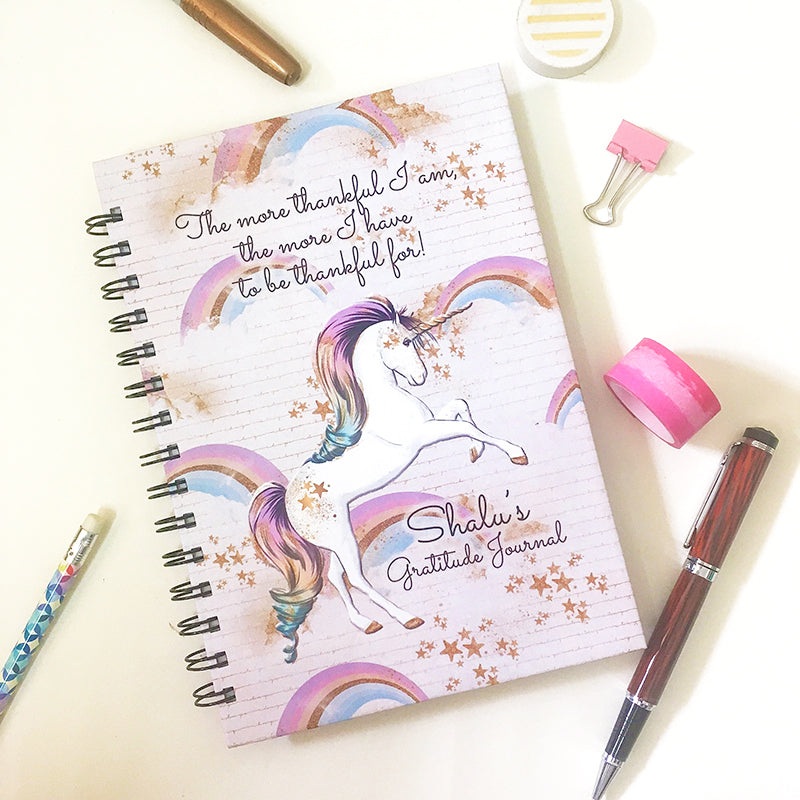 The more thankful I am,
the more I have
to be thankful for!
Shalu's
Gratitude Journal